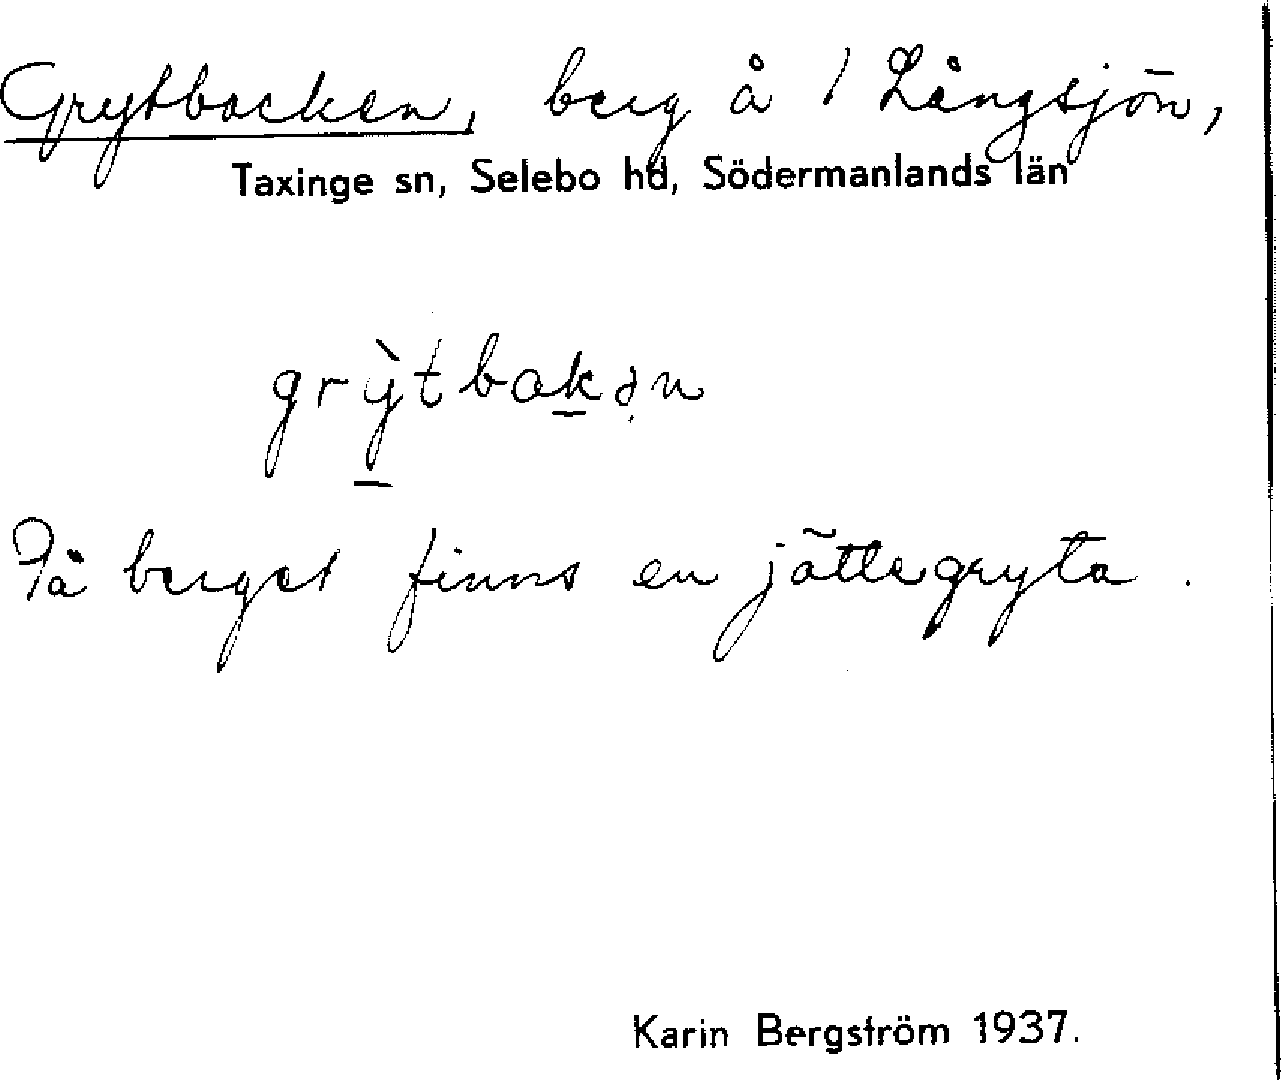 Grytbacken, berg å 1 Långsjön,
Taxinge sn, Selebo hd, Södermanlands län
grỳtbakən
På berget finns en jättegryta.
Karin Bergström 1937.